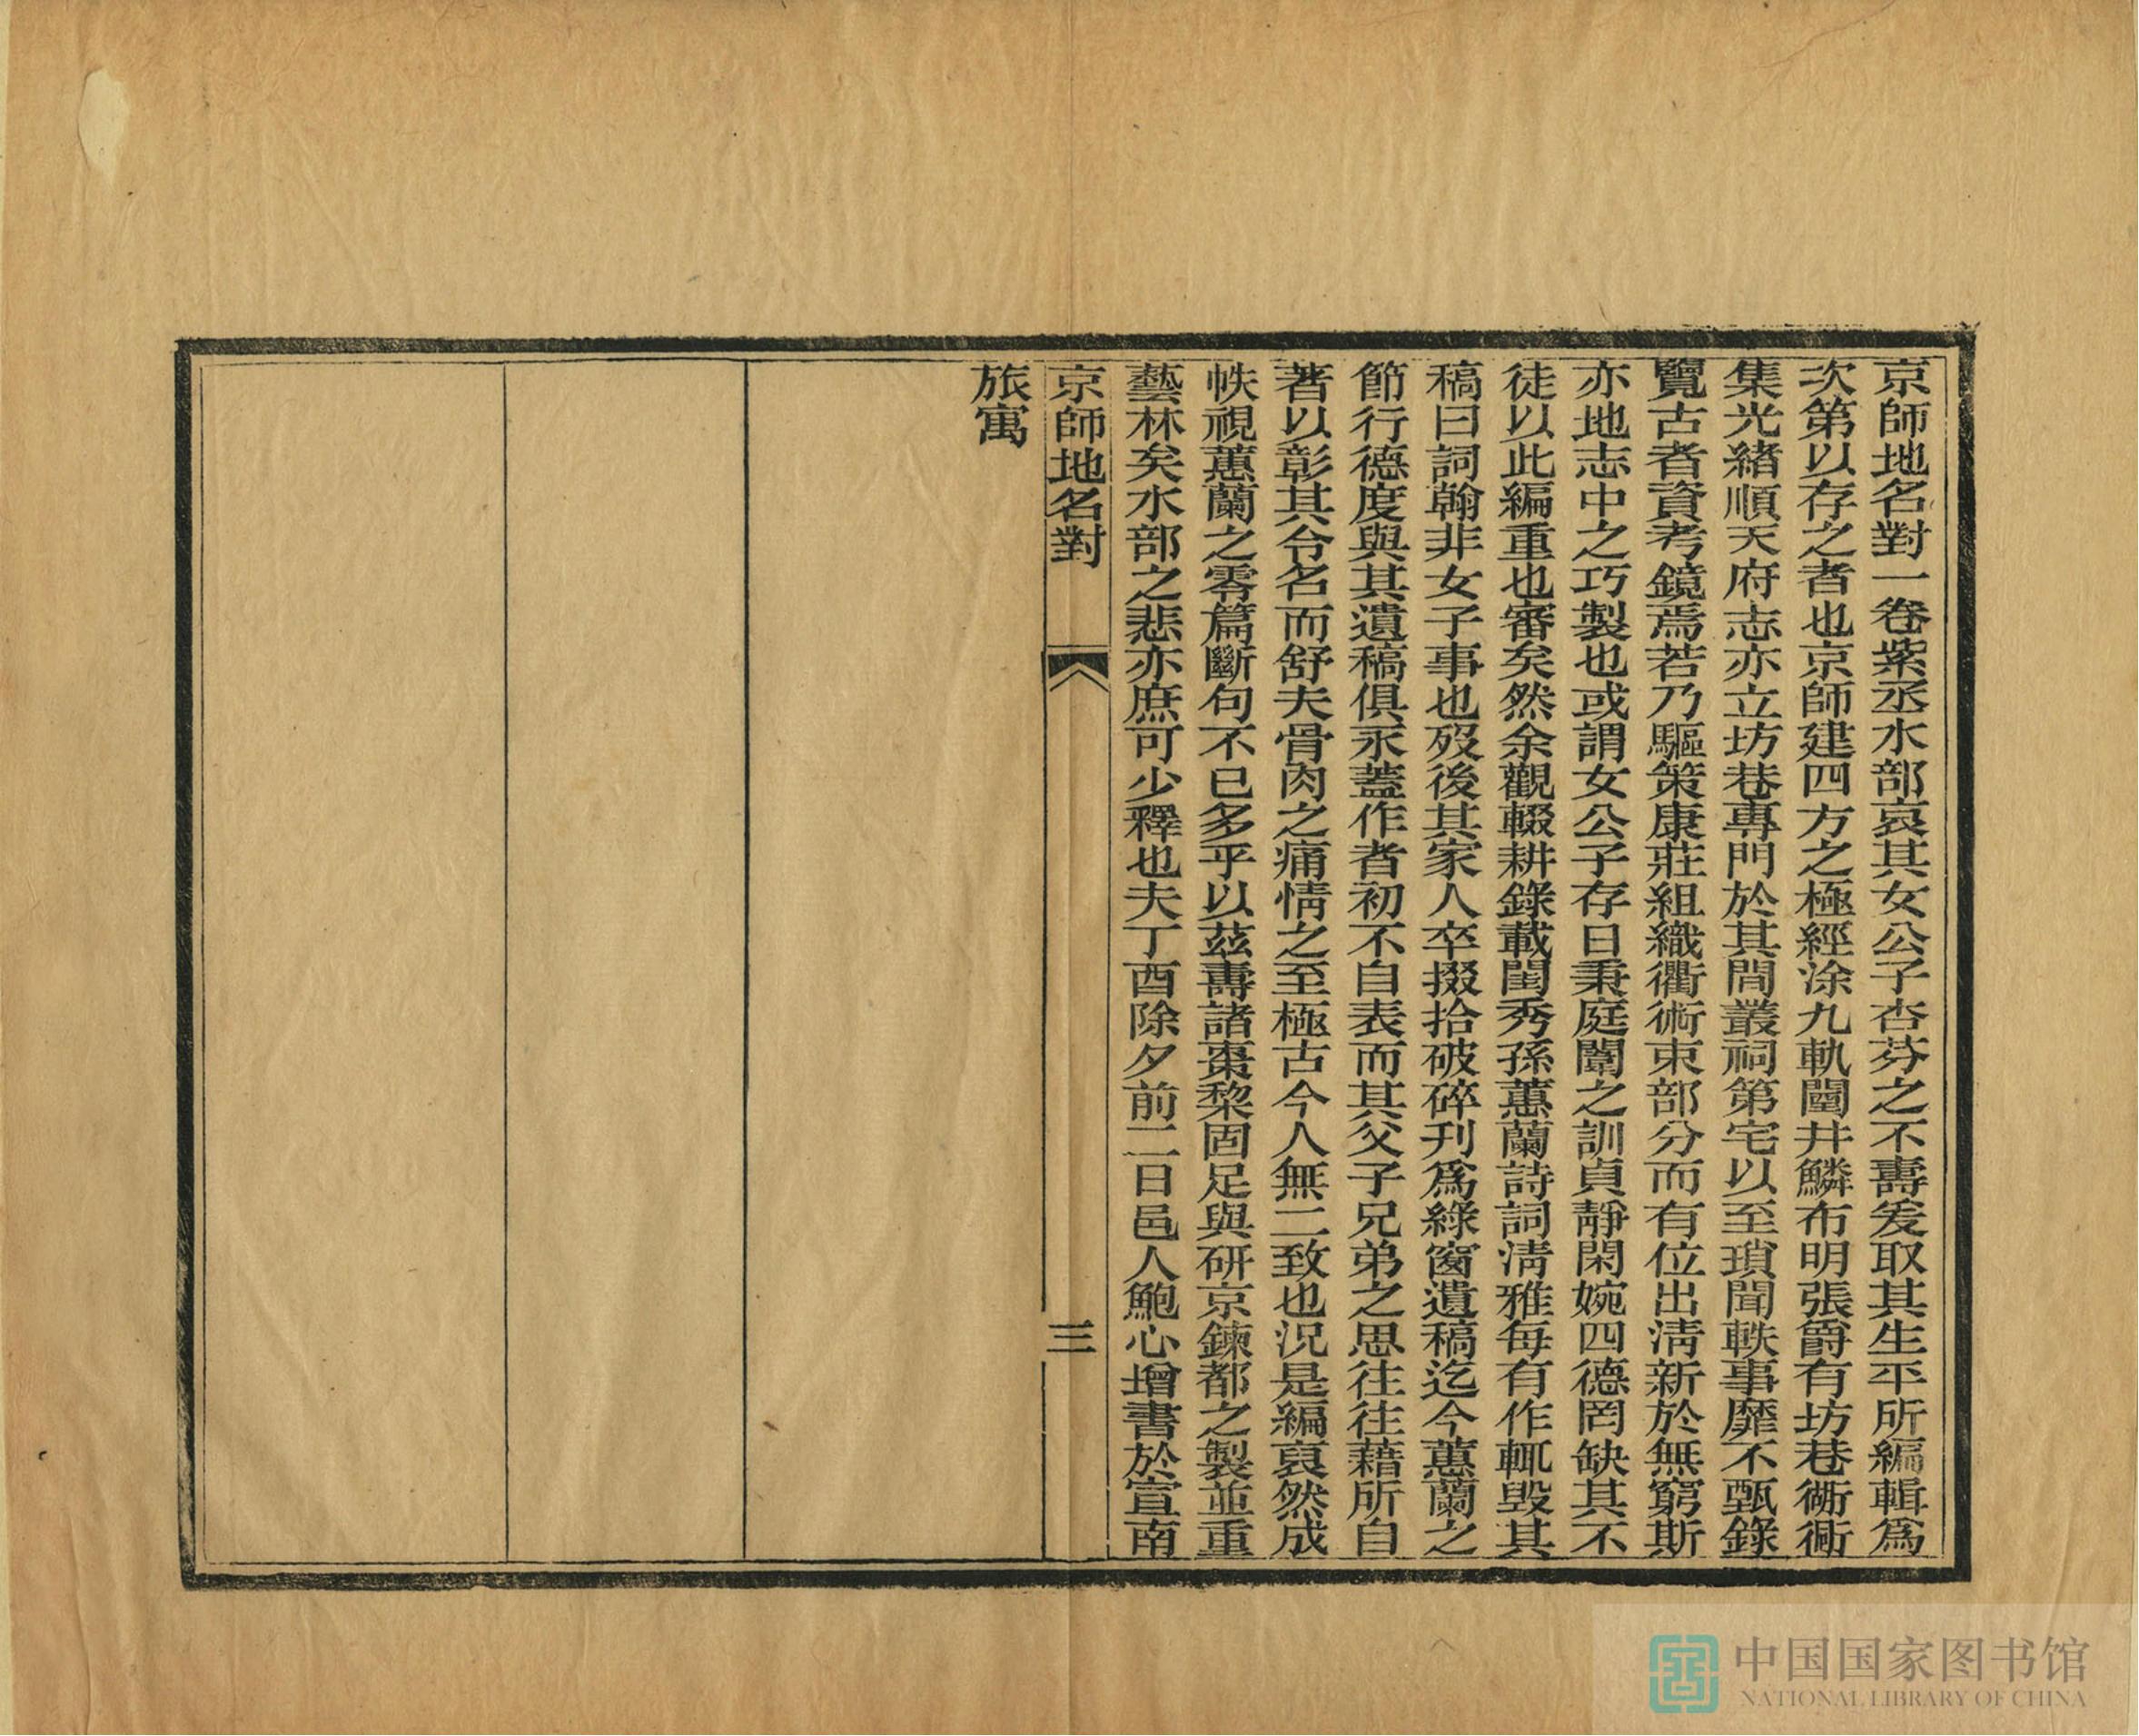 京師地名對一卷紫丞水部哀其女公子杏芬之不壽爰取其生平所編輯爲
次第以存之者也京師建四方之極經涂九軌闤井鱗布明張爵有坊巷衚衕
集光緒順天府志亦立坊巷專門於其間叢祠第宅以至瑣聞軼事靡不甄錄
覽古者資考鏡焉若乃驅策康莊組織衢術束部分而有位出淸新於無窮斯
亦地志中之巧製也或謂女公子存日秉庭闈之訓貞靜閑婉四德罔缺其不
徒以此編重也審矣然余觀輟耕錄載閨秀孫蕙蘭詩詞淸雅每有作輒毀其
稿曰詞翰非女子事也歿後其家人卒掇拾破碎刊爲綠窗遺稿迄今蕙蘭之
節行德度與其遺稿俱永蓋作者初不自表而其父子兄弟之思往往藉所自
著以彰其令名而舒夫骨肉之痛情之至極古今人無二致也況是編裒然成
帙視蕙蘭之零篇斷句不已多乎以茲壽諸棗棃固足與研京鍊都之製並重
藝林矣水部之悲亦庶可少釋也夫丁酉除夕前二日邑人鮑心增書於宣南
京師地名對 三
旅寓
中国国家图书馆
NATIONAL LIBRARY OF CHINA